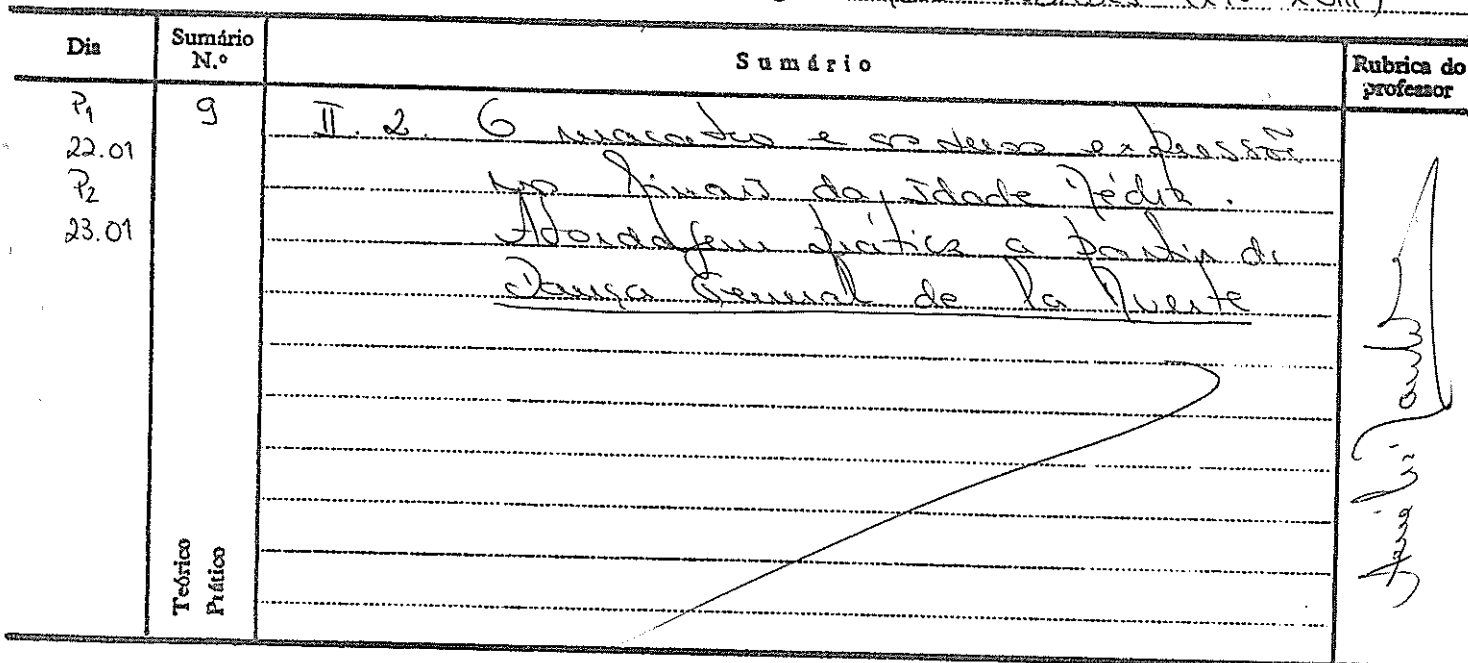 Dia
Sumário N.º
Sumário
Rubrica do professor
P1
22.01
P2
23.01
9
II. 2. O macabro e as suas expressões
nos finais da Idade Média.
Abordagem prática a partir da
Dança General de la Muerte
Teórico
Prático